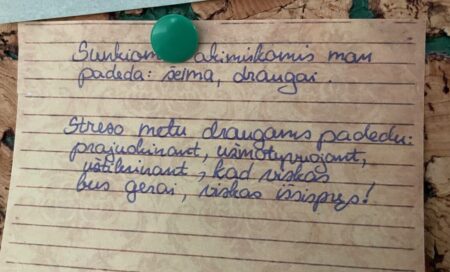 Sunkiom akimirkomis man
padeda: šeima, draugai.
Streso metu draugams padedu:
prajuokinant, užmotyvuojant,
užtikrinant, kad viskas
bus gerai, viskas išsispręs!